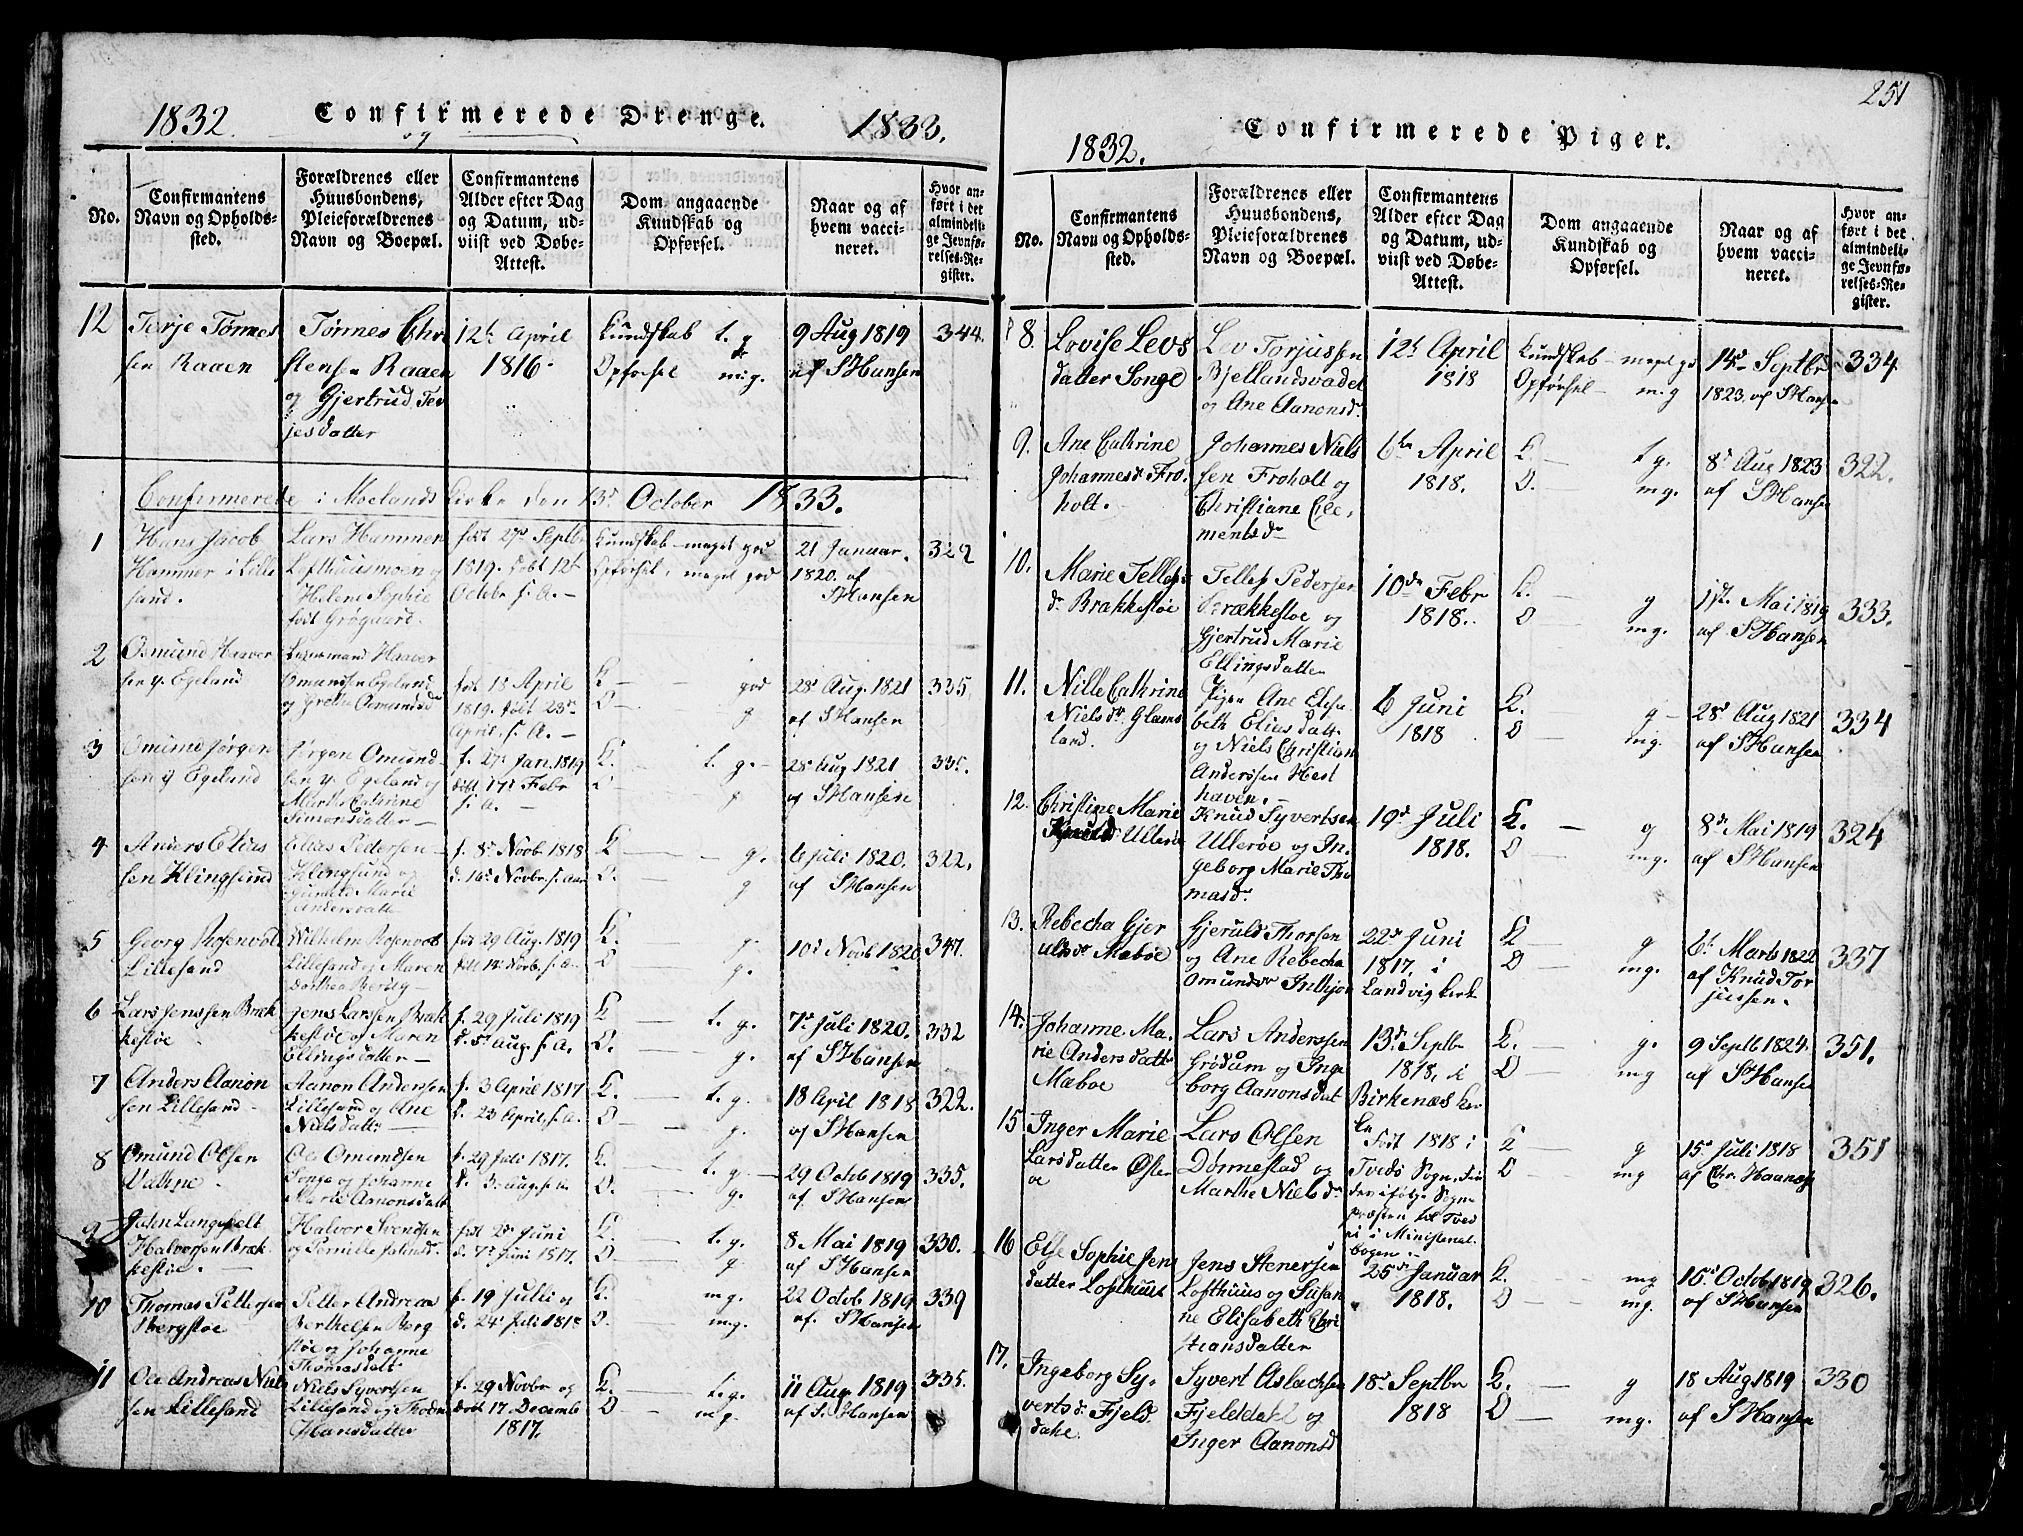 1832. Confirmerede Drenge. 1833.
og
No.
Confirmantens
Navn og Opholds-
sted.
Forældrenes eller
Huusbondens,
Pleieforældrenes
Navn og Boepæl.
Confirmantens
Alder efter Dag
og Datum, ud-
viist ved Døbe-
Attest.
Dom angaaende
Kundskab og
Opførsel.
Naar og af
hvem vacci-
neret.
Hvor an-
ført i det
almindeli-
ge Jevnfø-
relses-Re-
gister.
12
Terje Tørres
sen Raaen
Tørres Chri
stensen Raaen
og Gjertrud Ter
jesdatter
12t April
1816.
Kundskab t. g
Opførsel mg.
9 Aug 1819
af SHansen
344.
Confirmerede i Moelands Kirke den 13d October 1833.
1
Hans Jacob
Hammer i Lille
sand.
Lars Hammer
Lofthuusmoen og
Helene Sophie
født Grøgaard.
født 27de Septb
1819. døbt 12t
Octobr s. A. –
Kundskab – meget god
Opførsel, meget god
21 Januar
1820. af
SHansen
329
2
Osmund Haaver
sen y. Egeland
Haaver
Omundsen Egeland
og Grethe Osmundsdr
født 18 April
1819. døbt 23de
April, s. A. –
K – god
O – g
28d Aug. 1821
af SHansen
335.
3
Omund Jørgen
sen y Egeland
Jørgen Omund
sen y. Egeland og
Marthe Cathrine
Simonsdatter –
f. 27de Jan. 1819
døbt 17d Febr
s. A. –
K. t. g. –
O g
28d Aug 1821
af SHansen
335.
4
Anders Elias
sen Klingsund
Elias Pedersen –
Klingsund og
Marie
Andersdatte
f. 8d Novb 1818
d. 16d Novbr. s. Aar
K g.
O. g
6 juli 1820.
af SHansen
322.
5
Georg Rosenvold
Lillesand
Wilhelm Rosenvold
Lillesand og Maren
Dorthea Berdig –
født 29 Aug. 1819
døbt 14d Novb. s. A.
K. g.
O g.
10d Novb 1820
347.
6
Lars Jenssen Bræk
kestøe
Jens Larsen Bræk
kestøe og Maren
Ellingsdatter –
f. 29 Juli 1819
d. 5d aug. s. A.
K t. g.
O. g.
7d Juli 1820.
af SHansen
332
7
Anders Aanon
sen Lillesand –
Aanon Andersen
Lillesand og Ane
Nielsdattr –
f. 3 April 1817
d. 23 April, s. A.
K. t. g.
O g.
18 April 1818
af SHansen
322.
8
Omund Olsen
Vatne –
Ole Omundsen
Songe og Johanne
Marie Aanonsdatt
f. 29 Juli 1817.
d. 3 aug. s. A.
K. t. g. –
O. g.
29 Octb 1819
af. SHansen
335.
9
John Langfeldt
Halvorsen Bræk
kestøe. –
Halvor Svendsen
og Pernille
født 2de Juni
d. 7de Juni 1817.
K. t. g.
O g.
8 Mai 1819
af SHansen
330.
10
Thomas Pettersen
Bergstøe
Petter Andreas
Berthelsen Berg
støe og Johanne
Thomasdatt
f. 19 Julli og
d. 24d Juli 1818
K. mg.
O. mg.
22 Octob 1819
af. SHansen
339
11
Ole Andreas Niel
sen Lillesand
Niels Syvertsen
Lillesand og Thorine
Hansdatter
f. 29 Novbr og
døbt 17 Decemb
1817.
K. t. g.
O mg.
11 Aug 1819
af S. Hansen
335.
251
1832. Confirmerede Piger.
No.
Confirmantens
Navn og Opholds-
sted.
Forældrenes eller
Huusbondens,
Pleieforældrenes
Navn og Boepæl.
Confirmantens
Alder efter Dag
og Datum, ud-
viist ved Døbe-
Attest.
Dom angaaende
Kundskab og
Opførsel.
Naar og af
hvem vacci-
neret.
Hvor an-
ført i det
almindeli-
ge Jevnfø-
relses-Re-
gister.
8.
Lovise Levs
datter Songe
Lev Torjussen
Bjellandsvadet
og Ane Aanonsdr
12t April
1818
Kundskab – meget gd
Opførsel – mg
14d Septbr
1823. af SHansen
334.
9.
Ane Cathrine
Johannesdr Fro-
holt. –
Johannes Niels
sen Froholt og
Christiane Cle-
mentsdr
6te April
1818.
K – t. g.
O. – mg.
8d Aug 1823
af SHansen
322.
10.
Marie Tellefs
dr Brækkestøe
Tellef Pedersen
Brækkestøe og
Gjertrud Marie
Ellingsdatter
10de Febr
1818.
K. – g
O – mg.
1st. Mai 1819
af SHansen
333.
11.
Nille Cathrine
Nielsdr Glams
land.
Pigen Ane Elisa
beth Eliasdatt.
og Niels Christian
Anderssen Hest
haven. –
6 Juni
1818
K. g –
O mg.
28d Aug 1821
af SHansen
334
12.
Christine Marie
Knudsd Ulerøe
Knud Syvertsen
Ulerøe og In-
geborg Marie Tho
masdr
19d Juli
1818.
K. – g
O – mg.
8de Mai 1819
af SHansen
324
13.
Rebecha Gjer
ulsdr Mæbøe
Gjeruld Thorsen
og Ane Rebecha
Omundsdr Indtjøn
22de Juni
1817. i
Landvig Kirk
K – g
O – mg.
6t Marts 1822
af Knud Tor
jussen.
337
14.
Johanne Ma-
rie Andersdatt
Mæbøe
Lars Anderssen
Grødum og Inge
borg Aanonsdat
13d Septbr
1818, i
Birkenæs Kir
ke
K. – g.
O – mg
9 Septb 1824.
af SHansen
351.
15
Inger Marie
Larsdatter Øster
øe
Lars Olsen
Dømmestad og
Marthe Nielsdr
Født 1818 i
Tveds Sogn,
ifølge Sogne
præsten til Tved
i Ministerial-
bogen –
K – g
O – mg
15d Juli 1818
af Chr. Haanæs
351
16
Else Sophie Jens
datter Lofthuus
Jens Stenersen
Lofthuus og Susan
ne Elisabeth Chri
stiansdatter
25de Januar
1818.
K. mg
O – mg.
15d Octob 1819
af SHansen
326.
17.
Ingeborg Sy-
vertsdr Fjeld
dahl.
Syvert Aslachsen
Fjelddahl og
Inger Aanonsd
18d Septbr
1818
K. – g
O – mg.
18 Aug 1819
af SHansen
330